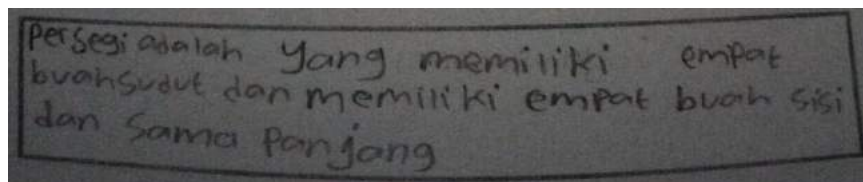 Persegi adalah yang memiliki empat
buah sudut dan memiliki empat buah sisi
dan sama panjang